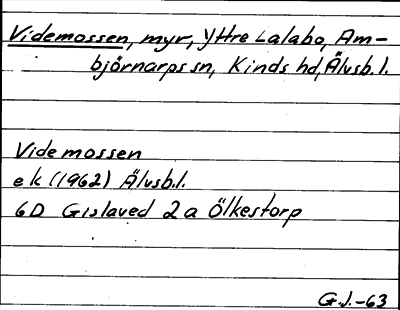 Videmossen, myr, Yttre Lalabo, Am-
björnarps sn, Kinds hd, Älvsb. l.
Videmossen
ek (1962) Älvsb.l.
6D Gislaved 2a Ölkestorp
G.J.-63